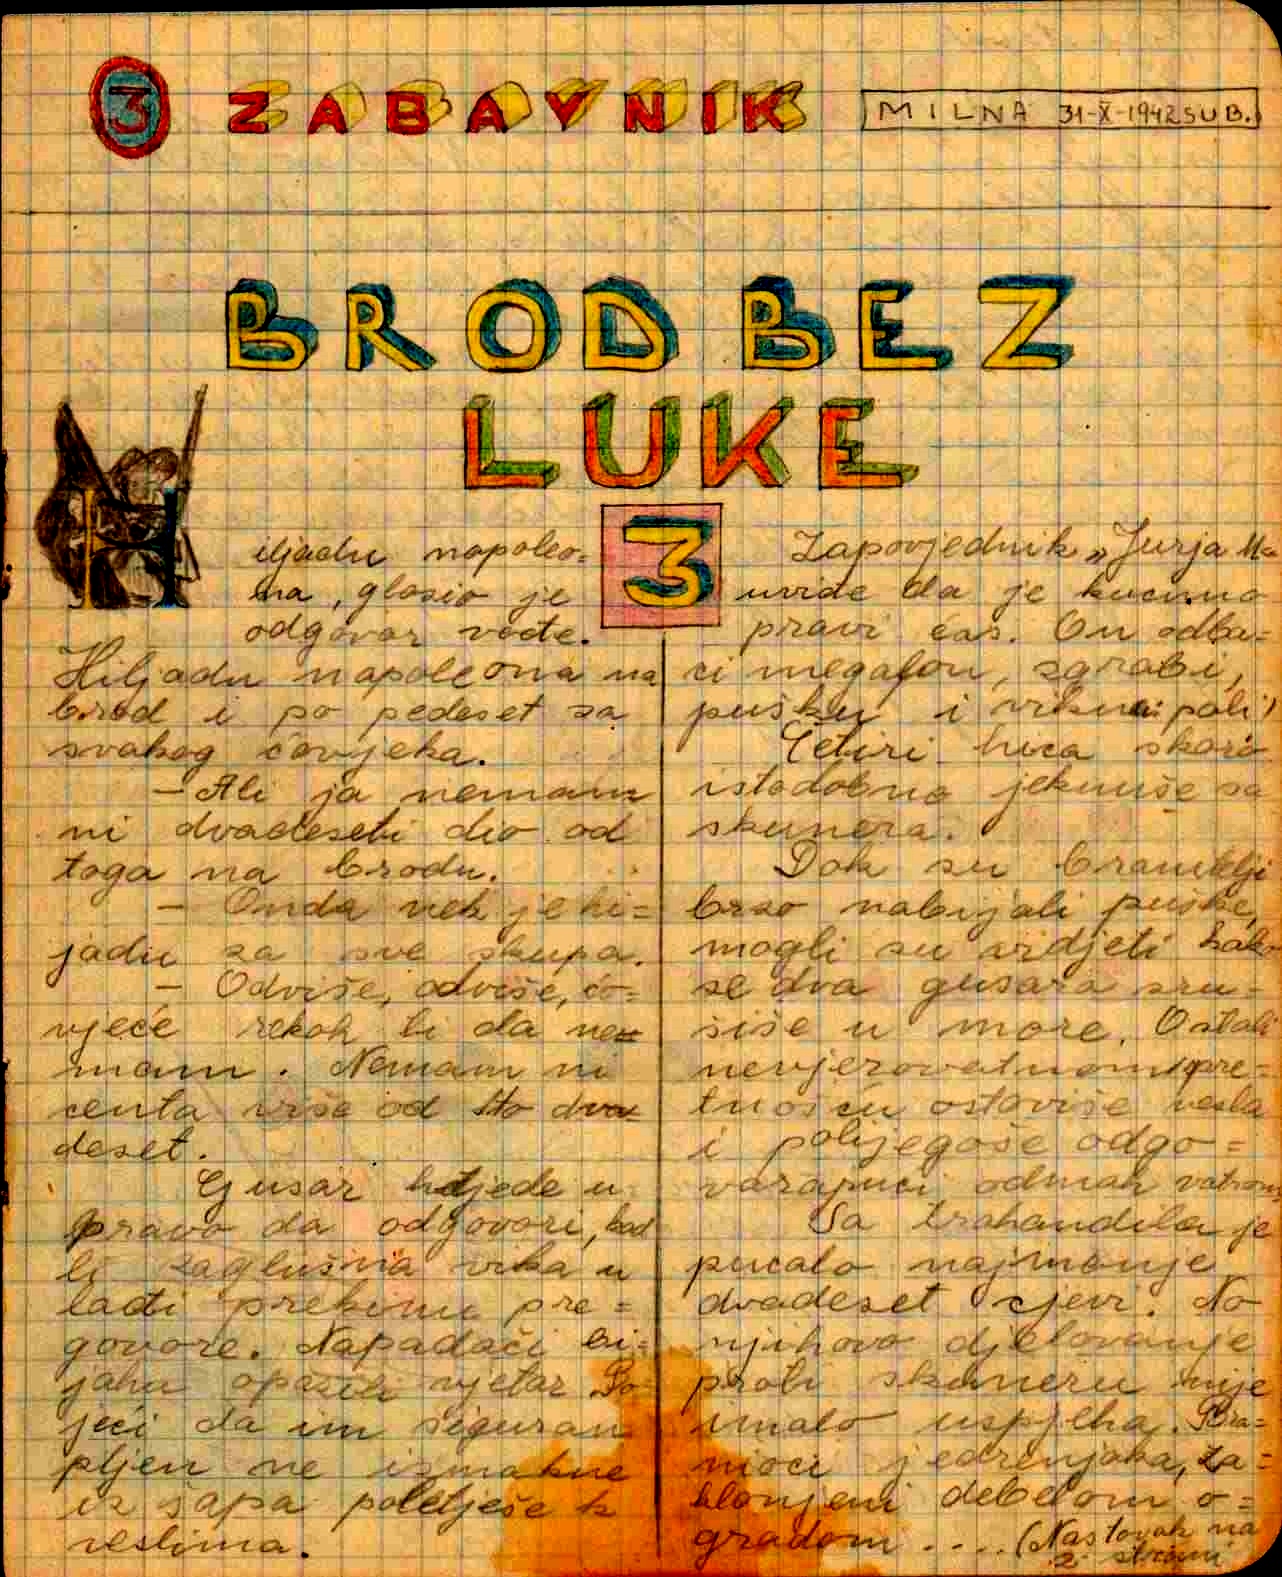 3 ZABAVNIK
MILNA 31-X-1942 SUB.
BROD BEZ
LUKE
3
Hiljadu napoleo=
na, glasio je
odgovor vođe.
Hiljadu napoleona na
brod i po pedeset za
svakog čovjeka.
— Ali ja nemam
ni dvadeseti dio od
toga na brodu.
— Onda nek je hi=
jadu za sve skupa.
— Odviše, odviše, čo=
vječe rekoh ti da ne=
mam. Nemam ni
centa više od sto dva=
deset.
Gusar htjede u
pravo da odgovori, kad
li zaglušna vika u
lađi prekinu pre=
govore. Napadači bi=
jahu opazili vjetar. Bo=
jeći da im siguran
pljen ne izmakne
iz šapa poletješe k
veslima.
Zapovjednik „Jurja Ma
uviđe da je kucnuo
pravi čas. On odba=
ci megafon, zgrabi,
pušku i viknu: pali!
Četiri hica skoro
istodobno jeknuše sa
skunera.
Dok su branitelji
brzo nabijali puške,
mogli su vidjeti kako
se dva gusara sru=
šiše u more. Ostali
nevjerovatnom spre=
tnošću ostaviše vesla
i polijegoše odgo=
varajući odmah vatrom
Sa trahandila je
pucalo najmanje
dvadeset cjevi. No
njihovo djelovanje
proti skuneru nije
imalo uspjeha. Bra=
nioci jedrenjaka, za=
klonjeni debelom o=
gradom .... (Nastavak na
2 strani